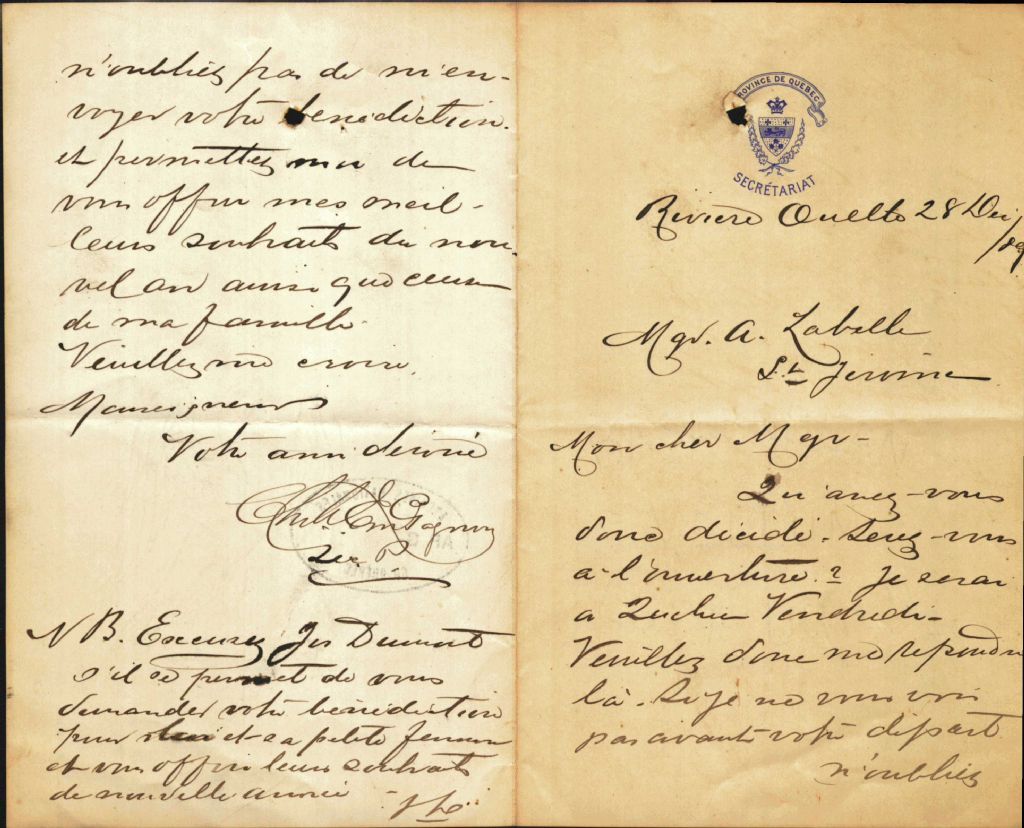 PROVINCE DE QUEBEC
SECRÉTARIAT
Rivière Ouelle 28 Dec /89
Mgr. A. Labelle
St Jerome
Mon cher Mgr -
Qu'avez-vous
donc décidé. Serez-vous
à l'ouverture.? Je serai
a Québec Vendredi -
Veuillez donc me repondre
là. Si je ne vous vois
pas avant votre départ
n'oubliez
n'oubliez pas de m'en-
voyer votre bénédiction.
et permettez moi de
vous offrir mes meil-
leurs souhaits du nou-
vel an ainsi que ceux
de ma famille.
Veuillez me croire,
Monseigneur
Votre ami dévoué
Gagnon
Sec P
N B. Excusez Jos Dumont
s'il se permet de vous
demander votre bénédiction
pour lui et sa petite femme
et vous offrir leurs souhaits
de nouvelle année -